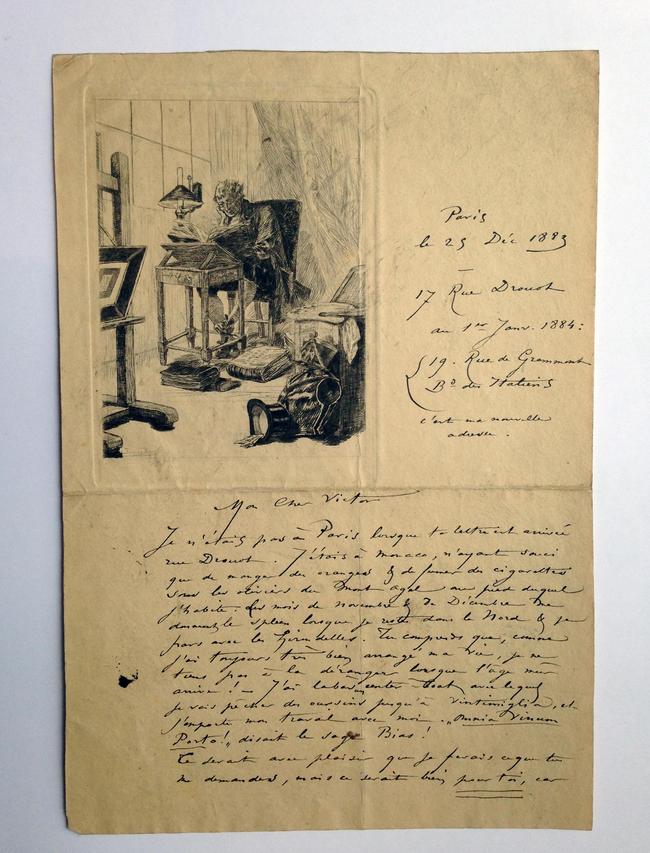 Paris
le 25 Déc 1883
17 Rue Drouot
au 1er Janv. 1884:
19. Rue de Grammont
Bd des Italiens
c'est ma nouvelle
adresse.
Mon Cher Victor
Je n'étais pas à Paris lorsque ta lettre est arrivée
rue Drouot. J'étais à Monaco, n'ayant souci
que de manger des oranges & de fumer des cigarettes
sous les oliviers du Mont Agel au pied duquel
j'habite. Les mois de Novembre & de Décembre me
donnent le spleen lorsque je reste dans le Nord & je
pars avec les Hirondelles. Tu comprends que, comme
j'ai toujours très bien arrangé ma vie, je ne
tiens pas à la déranger lorsque l'âge mûr
arrive! – J'ai là-bas un center-boat avec lequel
je vais pêcher des oursins jusqu'à Vintimiglia, et
j'emporte mon travail avec moi. „Omnia
Porto!„ disait le sage Bias!
Ce serait avec plaisir que je ferais ce que tu
me demandes, mais ce serait bien pour toi, car